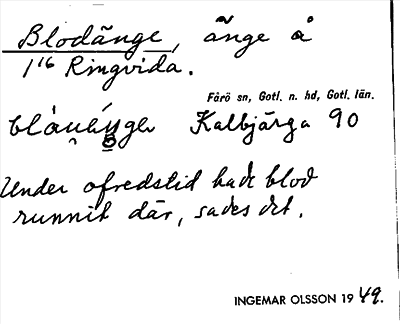 Blodänge, änge å
1/16 Ringvida.
Fårö sn, Gotl. n. hd, Gotl. län.
Kalbjärga 90
Under ofredstid hade blod
runnit där, sades det.
INGEMAR OLSSON 1949.